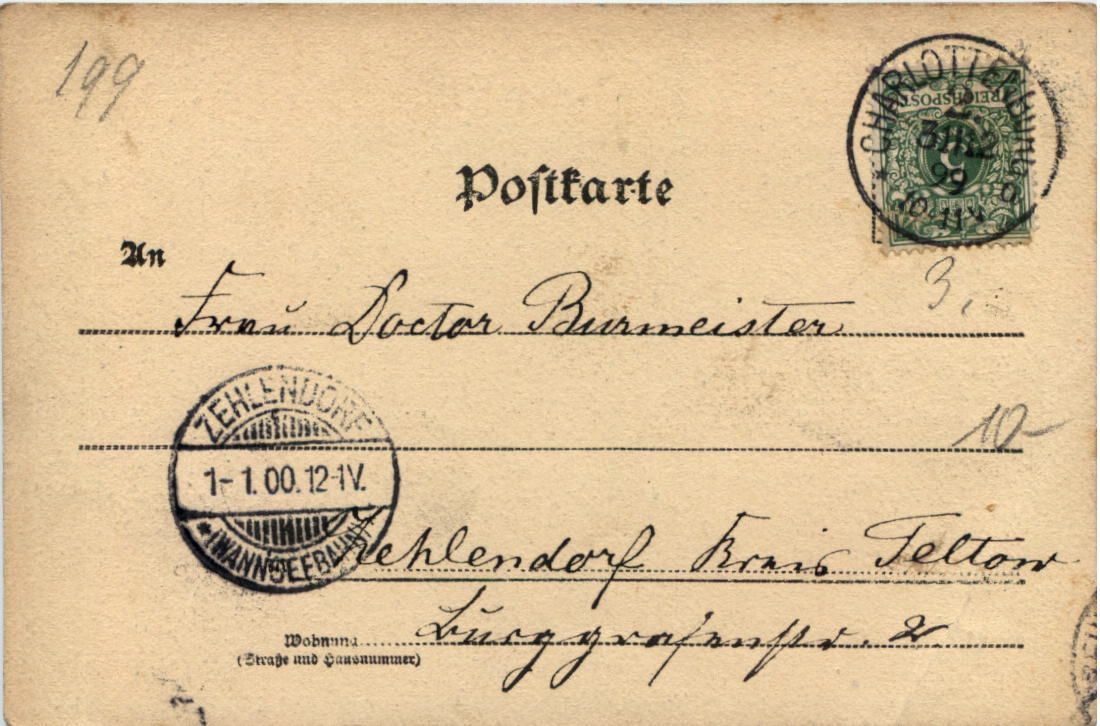 199
CHARLOTTENBURG
2.
31.12
99
10-11V
REICHSPOST
5
Postkarte
An
Frau Doctor Burmeister
3,
10-
ZEHLENDORF
1-1.00.12-1V.
*(WANNSEEBAHN)*
Zehlendorf Kreis Teltow
Wohnung
(Straße und Hausnummer)
Burggrafenstr. 2